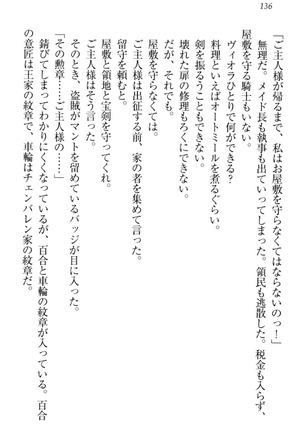 136
「ご主人様が帰るまで、私はお屋敷を守らなくてはならないのっ!」
無理だ。メイド長も執事も出ていってしまった。領民も逃散した。税金も入らず、
屋敷を守る騎士もいない。
ヴィオラひとりで何ができる?
料理といえばオートミールを煮るぐらい。
剣を振ることもできない。
壊れた扉の修理もろくにできない。
だが、それでも。
屋敷を守らなくては。
ご主人様は出征する前、家の者を集めて言った。
留守を頼むと。
屋敷と領地と宝剣を守ってくれ。
ご主人様はそう言った。
そのとき、盗賊がマントを留めているバッジが目に入った。
「その勲章……ご主人様の……」
錆びてしまってわかりにくくなっているが、百合と車輪の紋章が入っている。百合
の意匠は王家の紋章で、車輪はチェンバレン家の紋章だ。